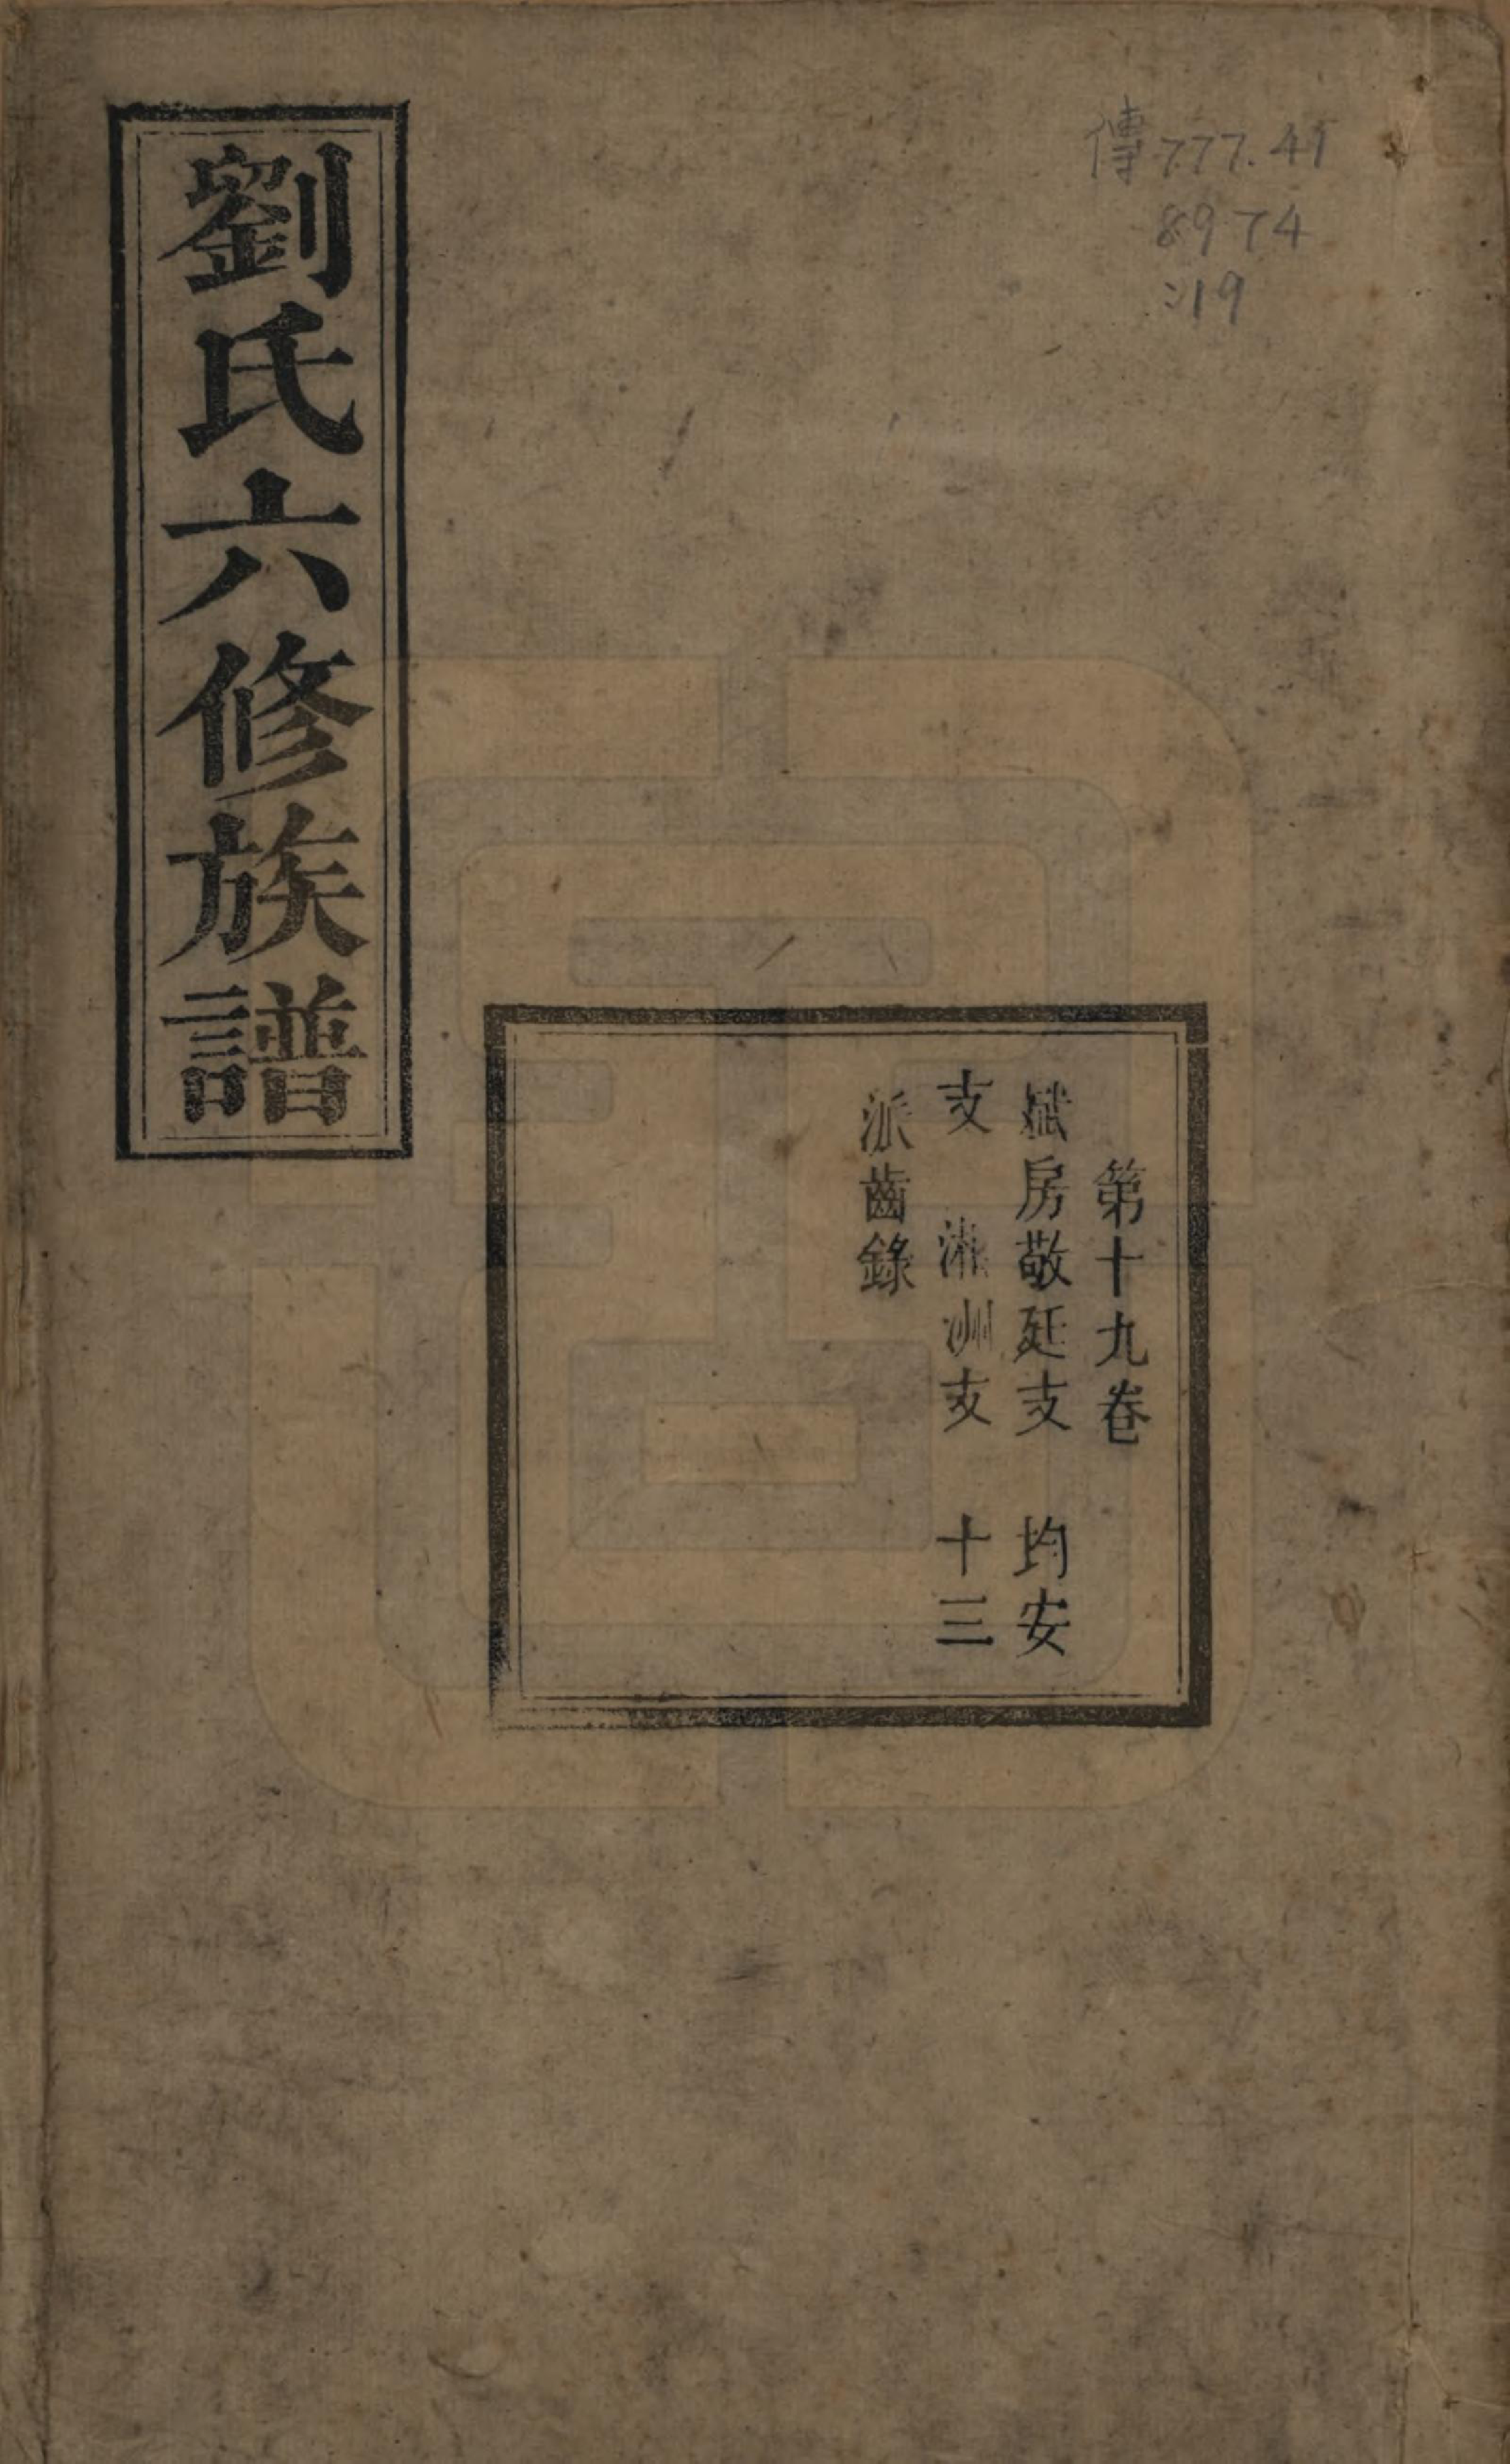 傳777.41
8974
:19
第十九卷
斌房敬延支 均安
支 湘洲支 十三
派齒錄
劉氏六修族譜